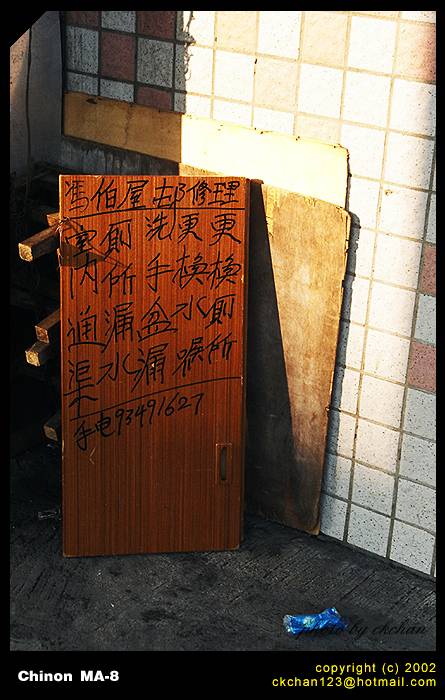 馮伯屋邨修理
室内通渠
廁所漏水
洗手盆漏
更換水喉
更換廁所
手电93491627
photo by ckchan
Chinon MA-8
copyright (c) 2002
ckchan123@hotmail.com